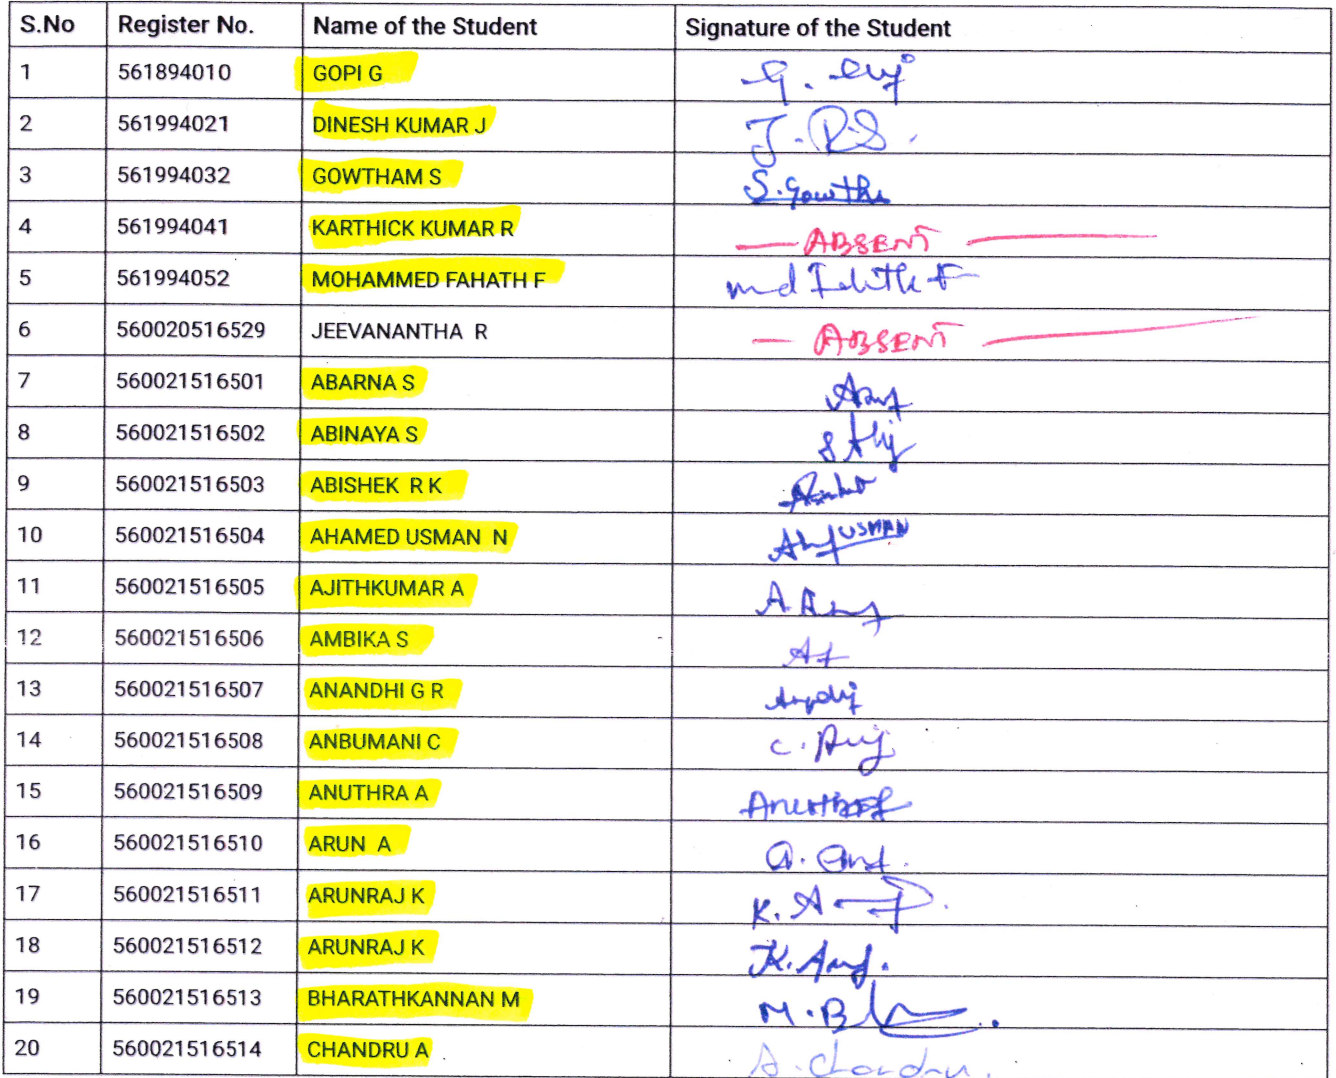 S.No Register No. Name of the Student Signature of the Student
1 561894010 GOPI G G.
2 561994021 DINESH KUMAR J J.
3 561994032 GOWTHAM S S. Gowtha
4 561994041 KARTHICK KUMAR R — ABSENT —
5 561994052 MOHAMMED FAHATH F md F
6 560020516529 JEEVANANTHA R — ABSENT —
7 560021516501 ABARNA S
8 560021516502 ABINAYA S
9 560021516503 ABISHEK R K
10 560021516504 AHAMED USMAN N USMAN
11 560021516505 AJITHKUMAR A A.
12 560021516506 AMBIKA S
13 560021516507 ANANDHI G R
14 560021516508 ANBUMANI C C.
15 560021516509 ANUTHRA A
16 560021516510 ARUN A a.
17 560021516511 ARUNRAJ K K. A
18 560021516512 ARUNRAJ K K.
19 560021516513 BHARATHKANNAN M M.B
20 560021516514 CHANDRU A A. Chandru.